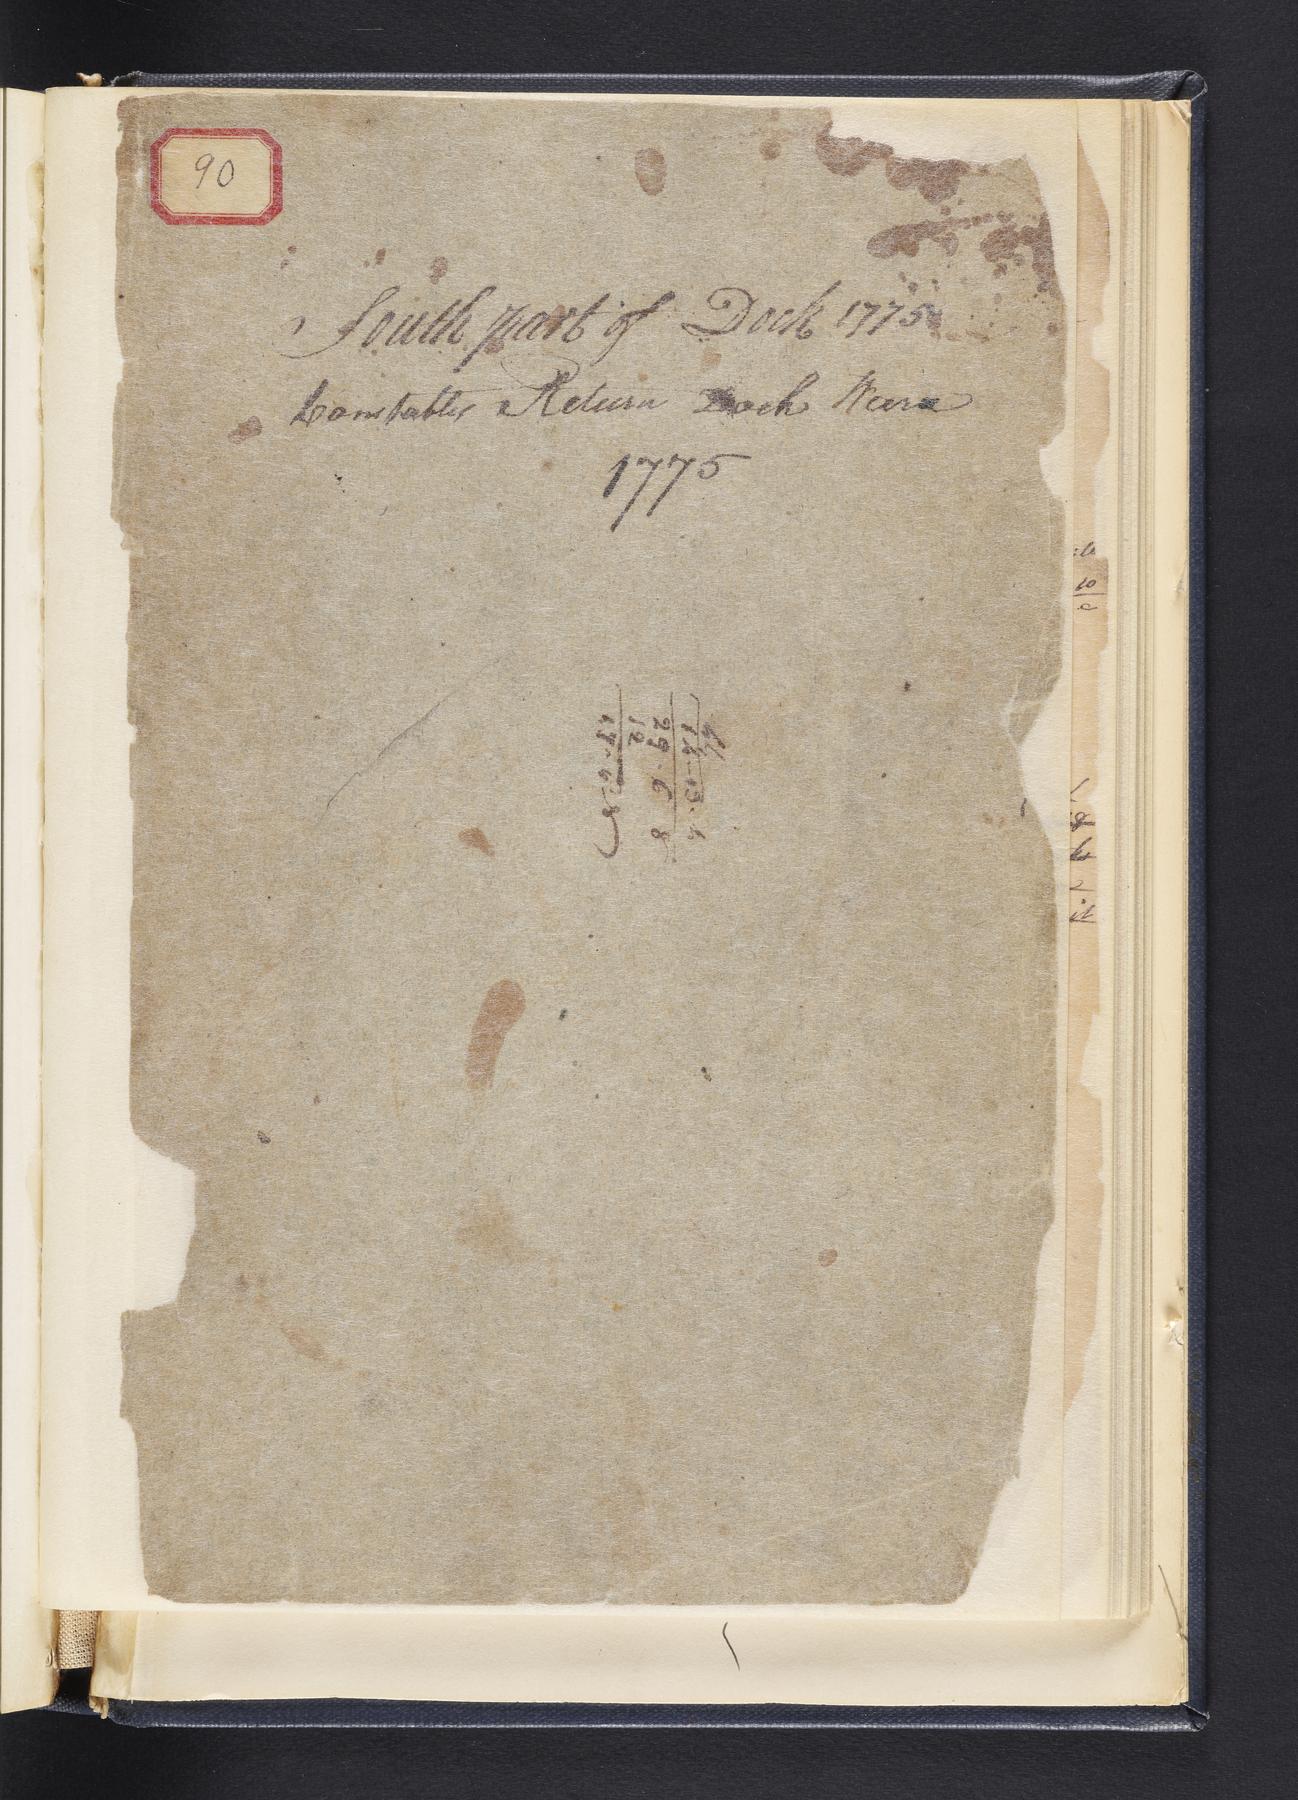 90
South part of Dock 1775
Constables Return Dock Ward
1775
29. 6 8
12